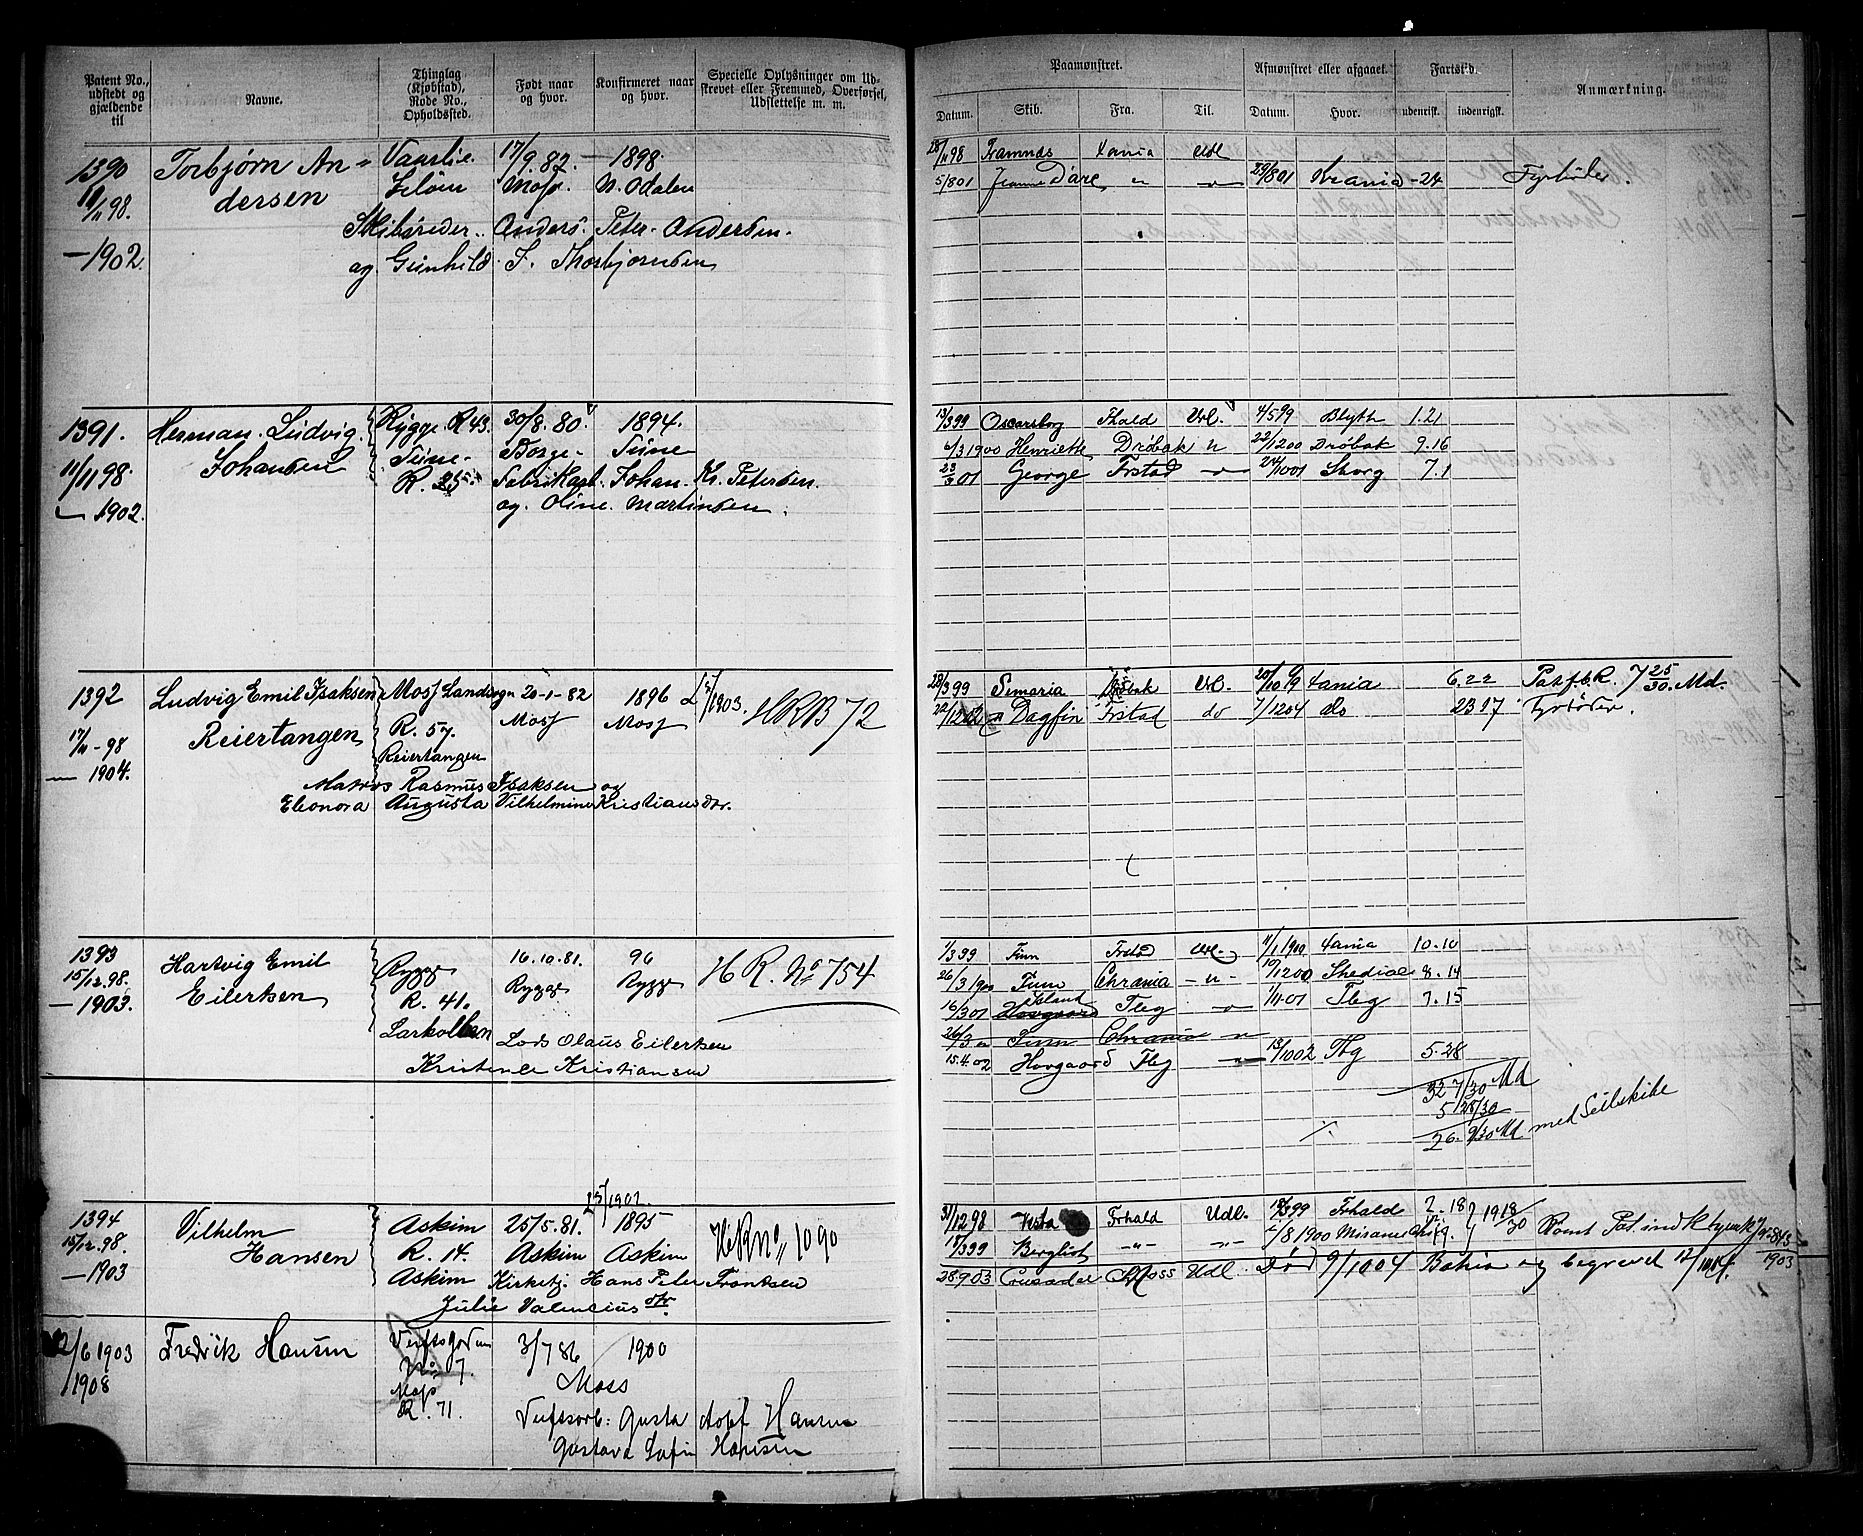 Patent No., udstedt og gjældende til
Navne.
Thinglag (Kjøbstad), Rode No., Opholdssted.
Født naar og hvor.
Konfirmeret naar og hvor.
Specielle Oplysninger om Udskrevet eller Fremmed, Overførsel, Udslettelse m. m.
Paamønstret.
Afmønstret eller afgaaet.
Fartstid.
Anmærkning.
Datum. Skib. Fra. Til. Datum. Hvor. udenrigst. indenrigst.
1390 Torbjørn An= Vaarlie 17/9.82. 1898.
11/11 98. dersen Moss. N. Odalen
Skibsreder. Anders. Peter. Andersen.
— 1902. og Gunhild. T. Thorbjørnsen
28/11 98 Framnæs Xania Udl
5/8 01 Jeanne Darc " " 29/8 01 Krania - 24 Fyrbøder.
1391. Herman. Ludvig. Rygge. R 43. 30/8.80. 1894.
Johansen Tune. Borge. Tune
11/11 98 R. 25. Fabrikarb. Johan. Kr. Petersen.
— 1902. og. Oline. Martinsen.
13/3 99 Oscarsborg Fhald Udl. 4/5 99 Blyth 1.21
6/3 1900 Henriette Drøbak " 22/12 00 Drøbak 9.16
23/3 01 George Frstad " 24/10 01 Sborg 7.1
1392 Ludvig Emil Isaksen Moss Landsogn 20-1-82 1896 1903. HRB 72
17/11 - 98 Reiertangen R. 57. Moss Moss
— 1904. Reiertangen
Matros Rasmus Isaksen og
Eleonora Augusta Vilhelmine Kristiansdr.
28/3 99 Semaria Udl. Xania 6.22 Pat. f. b. R. 7 25/30 Md.
Dagfin Frstad do 7/12 04 do 23 17 Fyrbøder.
1393 Hartvig Emil Rygge 16.10.81. 96 H R. No 754
15/12.98. Eilertsen R. 41. Rygge Rygge
— 1903. Larkollen Lods Olaus Eilertsen
Kristence Kristiansen
1/3 99 Finn Frstd Udl. 11/1 1900 Xania 10.10
26/3 1900 Finn Chrania " 17/12 00 Shediac 8.14
Island
16/3 01 Hovgaard Tbg " 1/11.01 Tbg 7.15
26/3 " Finn Chrania "
15.4.02 Hovgaard Tbg " 13/10 02 Tbg 5.28
32 7/30 Md
5 28/30
26. 9/30 Md med Seilskibe
1394 Vilhelm Askim 25/5.81. 1895 HRNo 1090
15/12.98. Hansen R. 14. Askim Askim
— 1903 Askim Kirketj. Hans Peter Frantsen
Julie Valensius dtr
31/12 98 Vesta Frhald Udl. Frhald 2.18
18/3 99 Bergliot " " /8 1900 19 18/30
28 9 03 Crusader Moss Udl. Død 9/10 04 Bahia og begravet 12/10 04. 1903
12/6 1903 Fredrik Hansen Verftsgaden 3/7 86 1900
1908 No 7. Moss
Moss
R. 71. Verftsarb: Gusta Adolf Hansen
Gustava Sofie Hansen